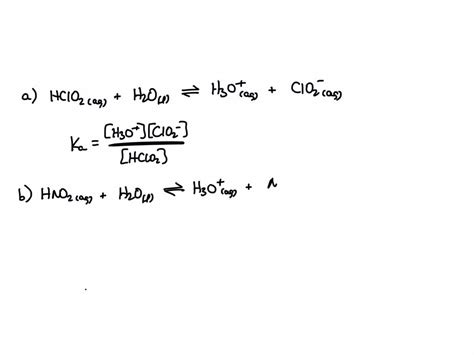 a) HClO₂(aq) + H₂O(l) ⇌ H₃O⁺(aq) + ClO₂⁻(aq)
Ka = [H₃O⁺][ClO₂⁻] / [HClO₂]
b) HNO₂(aq) + H₂O(l) ⇌ H₃O⁺(aq) +